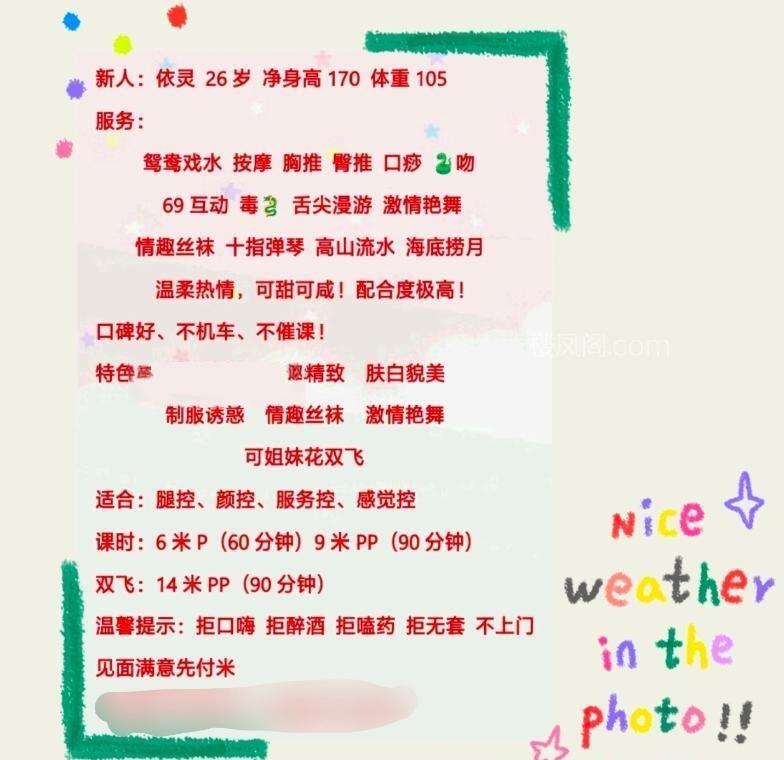 新人：依灵 26岁 净身高170 体重105
服务：
鸳鸯戏水 按摩 胸推 臀推 口痧 🐍吻
69互动 毒🐉 舌尖漫游 激情艳舞
情趣丝袜 十指弹琴 高山流水 海底捞月
温柔热情，可甜可咸！配合度极高！
口碑好、不机车、不催课！
特色 精致 肤白貌美
制服诱惑 情趣丝袜 激情艳舞
可姐妹花双飞
适合：腿控、颜控、服务控、感觉控
课时：6米P（60分钟）9米PP（90分钟）
双飞：14米PP（90分钟）
温馨提示：拒口嗨 拒醉酒 拒嗑药 拒无套 不上门
见面满意先付米
楼凤阁.com
Nice
weather
in the
photo!!